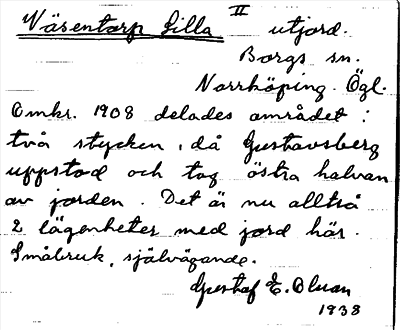 Väsentorp Lilla II utjord.
Borgs sn.
Norrköping. Ögl.
Omkr. 1908 delades området i
två stycken, då Gustavsberg
uppstod och tog östra halvan
av jorden. Det är nu alltså
2 lägenheter med jord här.
Småbruk, självägande.
Gustaf E. Olsson
1938